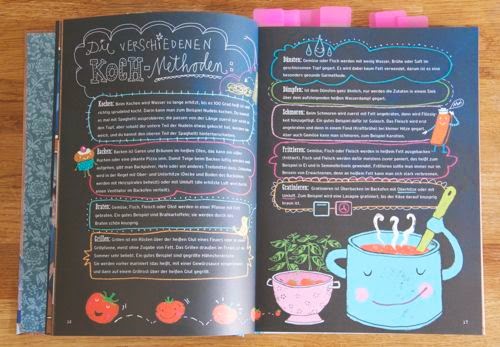 Die VERSCHIEDENEN
KOCH-Methoden:
Kochen: Beim Kochen wird Wasser so lange erhitzt, bis es 100 Grad heiß ist und
richtig sprudelnd kocht. Dann kann man zum Beispiel Nudeln kochen.
mal mit Spaghetti ausprobieren; die passen von der Länge zuerst
den Topf, aber sobald der untere Teil der Nudeln etwas gekocht hat, werden sie
weich und du kannst den oberen Teil der Spaghetti hinterherschieben.
Backen: Backen ist Garen und Bräunen im heißen Ofen, das kann man
Kuchen oder eine pikante Pizza sein. Damit Teige beim Backen luftig werden und
aufgehen, gibt man Backpulver, Hefe oder ein anderes Treibmittel dazu. Gebacken
wird in der Regel mit Ober- und Unterhitze (Decke und Boden des Backofens
werden mit Heizspiralen beheizt) oder mit Umluft (die erhitzte Luft wird durch
einen Ventilator im Backofen verteilt).
Braten: Gemüse, Fisch, Fleisch oder Obst werden in einer Pfanne mit Fett
gebraten. Ein gutes Beispiel sind Bratkartoffeln; sie werden durch das
Braten schön knusprig.
Grillen: Grillen ist ein Rösten über der heißen Glut eines Feuers oder in einer
Grillpfanne, meist ohne Zugabe von Fett. Das Grillen draußen im Freien ist im
Sommer sehr beliebt. Ein gutes Beispiel sind gegrillte
Sie werden vorher mariniert (das heißt, mit einer Gewürzsauce
und dann auf einem Grillrost über der heißen Glut gegrillt.
16
Dünsten: Gemüse oder Fisch werden mit wenig Wasser, Brühe oder Saft im
geschlossenen Topf gegart. Es wird dabei kaum Fett verwendet, darum ist es eine
besonders gesunde Garmethode.
Dämpfen: Ist dem Dünsten ganz ähnlich, nur werden die Zutaten in einem Sieb
über dem aufsteigenden heißen Wasserdampf gegart.
Schmoren: Beim Schmoren wird zuerst mit Fett angebraten, dann wird Flüssig-
keit hinzugefügt. Ein gutes Beispiel dafür ist Gulasch. Das Fleisch wird erst
angebraten und dann in einem Fond (Kraftbrühe) bei kleiner Hitze gegart,
aber auch Gemüse kann man schmoren, zum Beispiel Karotten.
Frittieren: Gemüse, Fisch oder Fleisch werden in heißem Fett ausgebacken
(frittiert). Fisch und Fleisch werden dafür meistens zuvor paniert, das heißt zum
Beispiel in Ei und in Semmelbröseln gewendet. Frittieren sollte man immer nur im
Beisein von Erwachsenen, denn an heißem Fett kann man sich stark verbrennen.
Gratinieren: Gratinieren ist Überbacken im Backofen mit Oberhitze oder mit
Umluft. Zum Beispiel wird eine Lasagne gratiniert, bis der Käse darauf knusprig
braun ist.
17